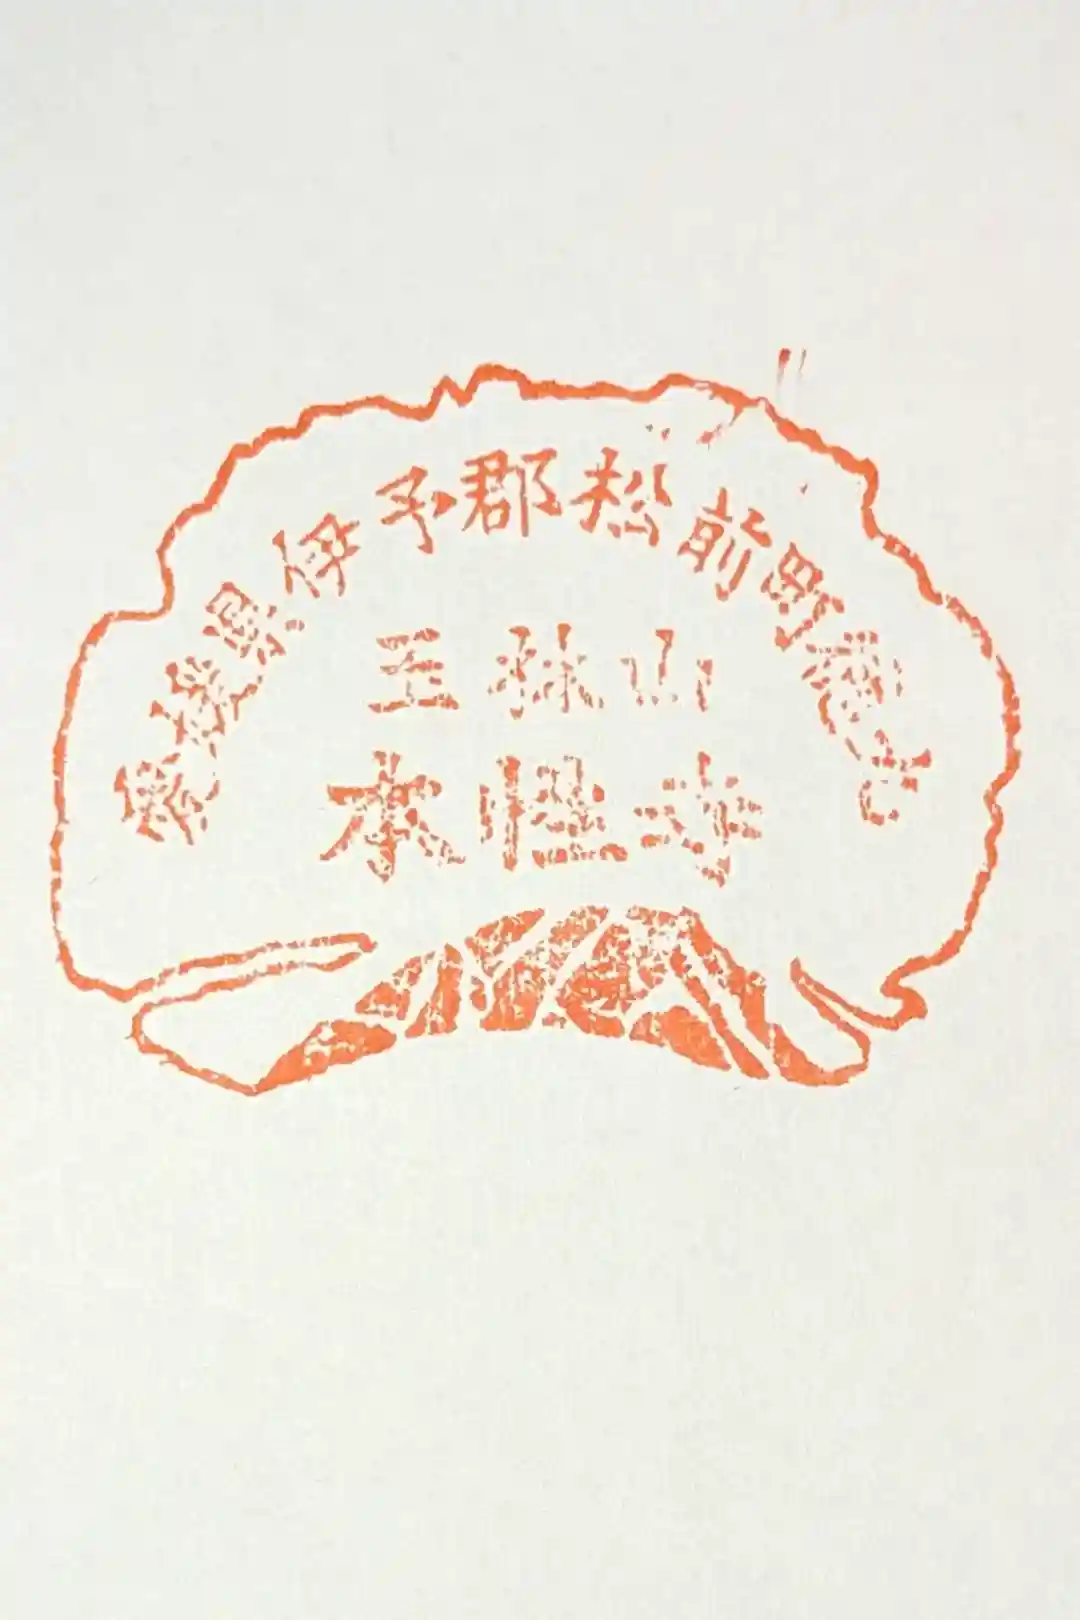 愛媛県伊予郡松前町徳丸
玉林山
本性寺